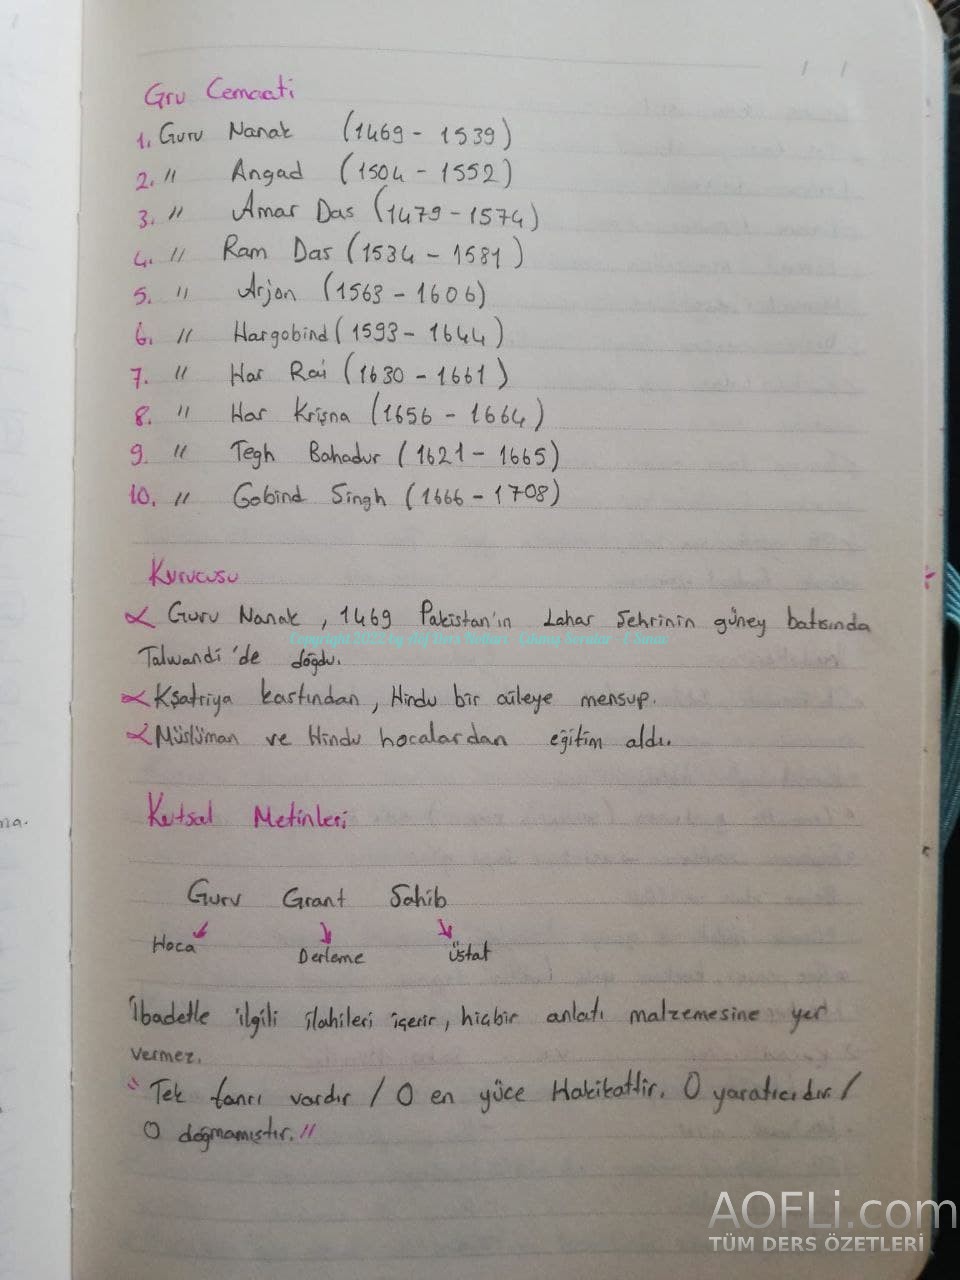 Gru Cemaati
1. Guru Nanak (1469 - 1539)
2. " Angad (1504 - 1552)
3. " Amar Das (1479 - 1574)
4. " Ram Das (1534 - 1581)
5. " Arjan (1563 - 1606)
6. " Hargobind (1593 - 1644)
7. " Har Rai (1630 - 1661)
8. " Har Krişna (1656 - 1664)
9. " Tegh Bahadur (1621 - 1665)
10. " Gobind Singh (1666 - 1708)
Kurucusu
Guru Nanak, 1469 Pakistan'ın Lahar Şehrinin güney batısında
Talwandi'de doğdu.
Kşatriya kastından, Hindu bir aileye mensup.
Müslüman ve Hindu hocalardan eğitim aldı.
Kutsal Metinleri
Guru Grant Sahib
Hoca Derleme Üstat
İbadetle ilgili ilahileri içerir, hiçbir anlatı malzemesine yer
vermez.
" Tek tanrı vardır / O en yüce Hakikattir. O yaratıcıdır /
O doğmamıştır. "
AOFLi.com
TÜM DERS ÖZETLERİ